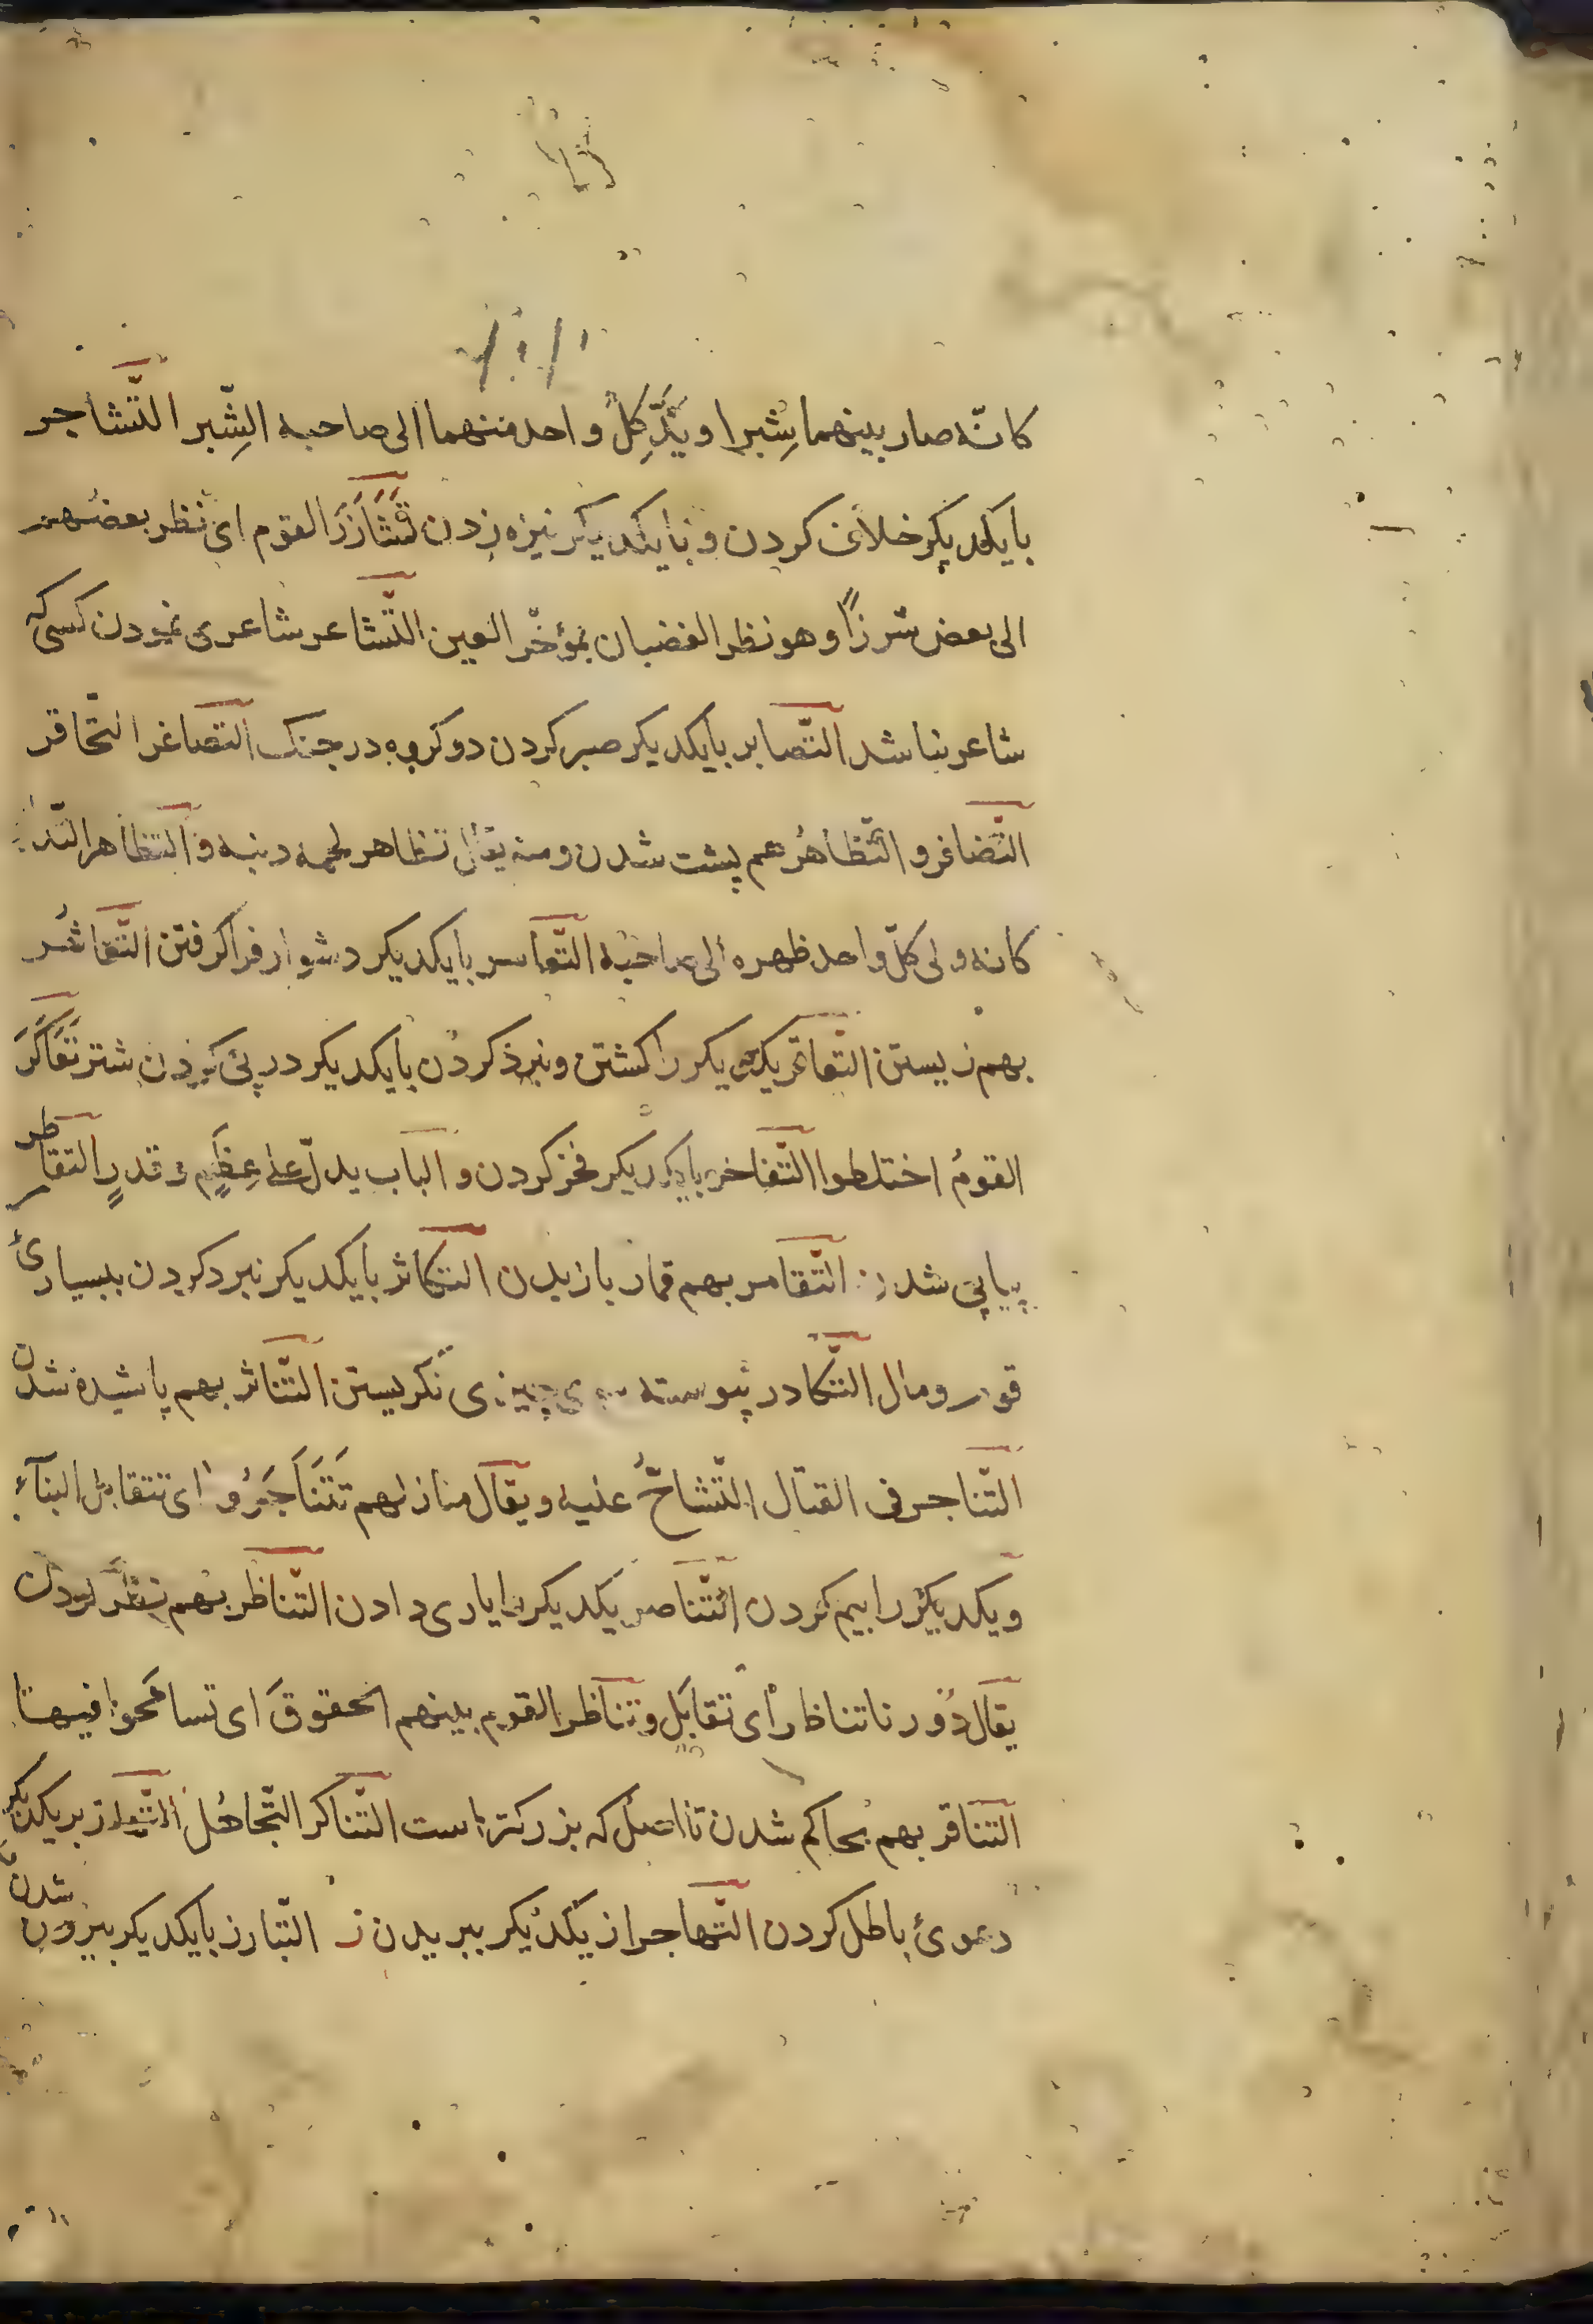 كانّه صار بينهما شِبرا ويَمُدّ كلّ واحد منهما الى صاحبه الشِبر التَّشاجر
بايكديكر خلاف كردن و بايكديكر نيزه زدن تَشَازَرَ القوم اى نظر بعضهم
الى بعض شزرًا وهو نظر الغضبان بمؤخّر العين التَّشاعر شاعرى نمودن كسى كه
شاعر نباشد التّصابر بايكديكر صبر كردن دو كروه در جنك التصاغر التّحاقر
التّضافر و التّظاهُر هم پشت شدن ومنه يقال تظاهر لحمه دنيه و التظاهر
كانه ولى كلّ واحد ظهره الى صاحبه التّعاسر بايكديكر دشوار فراكرفتن التّعاشُر
بهم زيستن التّعاقر يكديكر را كشتن و نبرد كردن بايكديكر در پى كردن شتر تَعَاكَرَ
القومُ اختلطوا التّفاخر بايكديكر فخر كردن و الباب يدلّ على عِظَمٍ و قدرٍ التقاطر
پياپى شدن التّقامر بهم قمار بازيدن التّكاثر بايكديكر نبرد كردن ببسيارىٔ
قوم ومال التّكادر پيوسته چيزى نكريستن التّناثر بهم پاشيده شدن
التّناجر فى القتال التّشاحُّ عليه ويقال منازلهم تَتَنَاحَرُ اى تتقابل البنآء
ويكديكر را بيم كردن التّناصر يكديكر را يارى دادن التّناظر بهم نظر كردن
يقال دُورنا تناظر اى تقابَل وتناظر القوم بينهم الحقوقَ اى تسامحوا فيها
التنافر بهم بحاكم شدن تا اصل كه بزركتر است التّناكر التّجاهُل بر يكديكر
دعوىٔ باطل كردن التّهاجر از يكديكر ببريدن ز التّبارز بايكديكر بيرون شدن